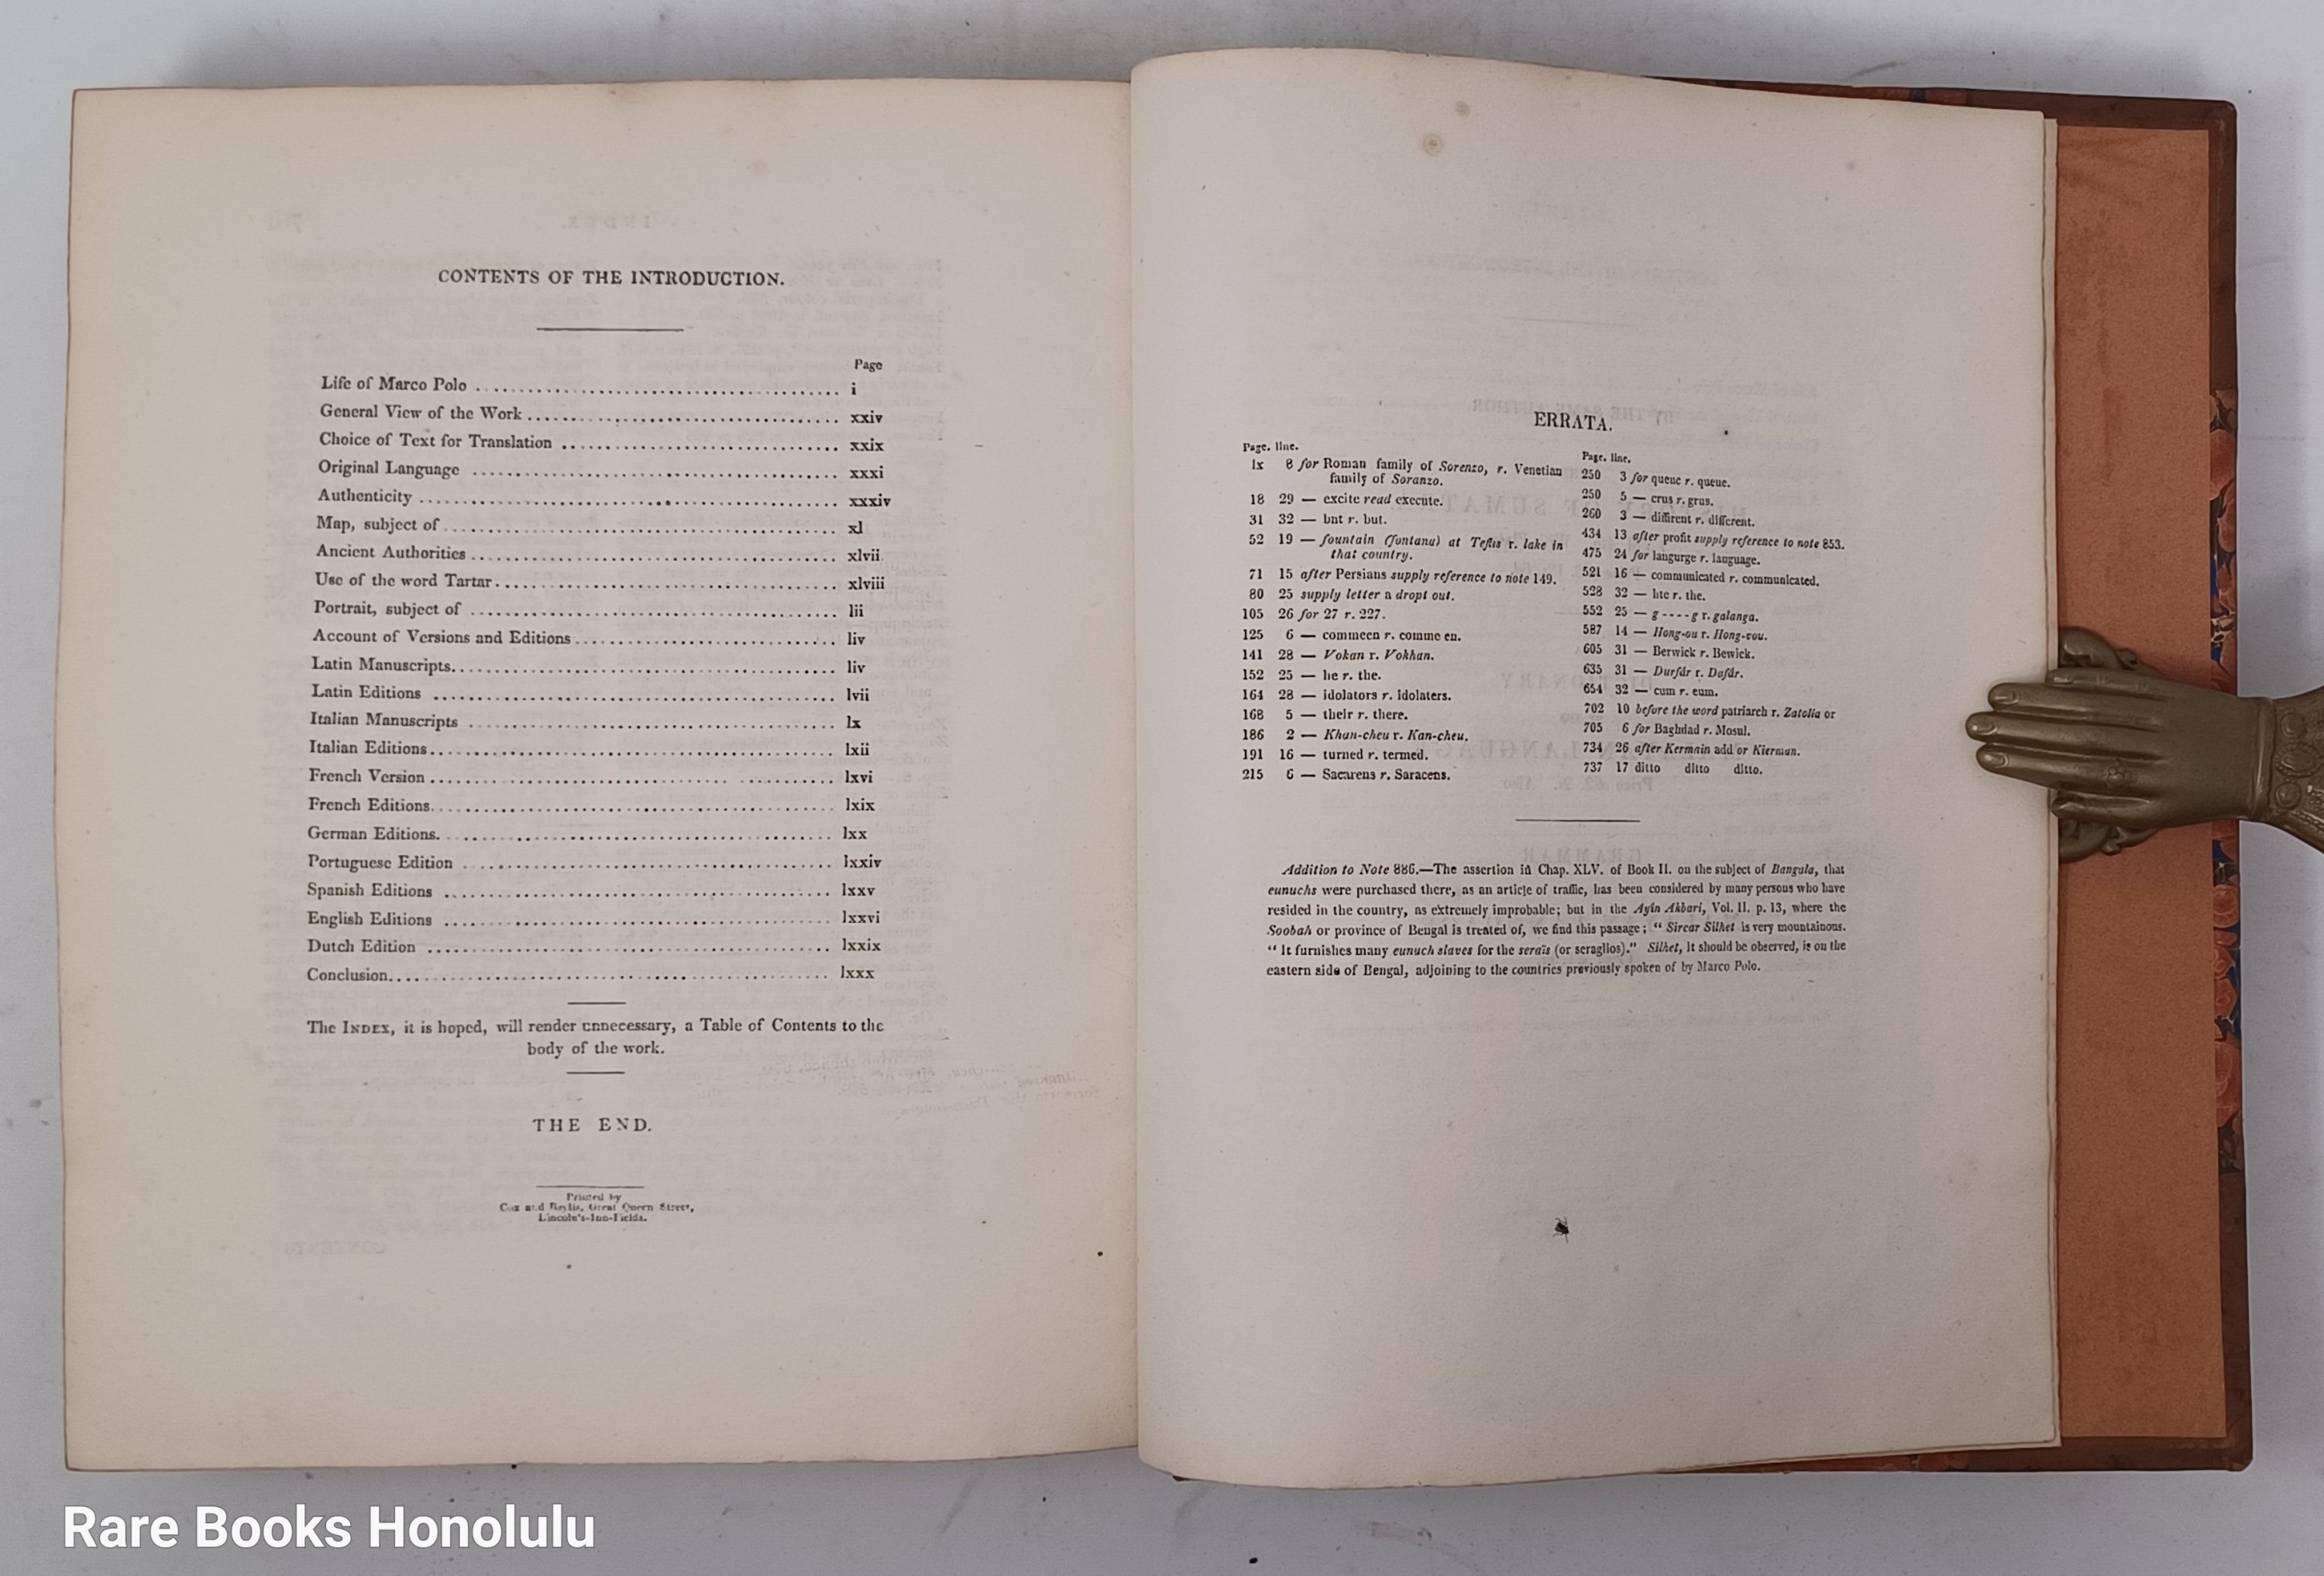 CONTENTS OF THE INTRODUCTION.
Page
Life of Marco Polo ........ i
General View of the Work ........ xxiv
Choice of Text for Translation ........ xxix
Original Language ........ xxxi
Authenticity ........ xxxiv
Map, subject of ........ xl
Ancient Authorities ........ xlvii
Use of the word Tartar ........ xlviii
Portrait, subject of ........ lii
Account of Versions and Editions ........ liv
Latin Manuscripts ........ liv
Latin Editions ........ lvii
Italian Manuscripts ........ lx
Italian Editions ........ lxii
French Version ........ lxvi
French Editions ........ lxix
German Editions ........ lxx
Portuguese Edition ........ lxxiv
Spanish Editions ........ lxxv
English Editions ........ lxxvi
Dutch Edition ........ lxxix
Conclusion ........ lxxx
The INDEX, it is hoped, will render unnecessary, a Table of Contents to the
body of the work.
THE END.
Printed by
Cox and Baylis, Great Queen Street,
Lincoln's-Inn-Fields.
ERRATA.
Page. line.
lx 8 for Roman family of Sorenzo, r. Venetian
family of Soranzo.
18 29 — excite read execute.
31 32 — bnt r. but.
52 19 — fountain (fontana) at Teflis r. lake in
that country.
71 15 after Persians supply reference to note 149.
80 25 supply letter a dropt out.
105 26 for 27 r. 227.
125 6 — commeen r. comme en.
141 28 — Vokan r. Vokhan.
152 25 — he r. the.
164 28 — idolators r. idolaters.
168 5 — their r. there.
186 2 — Khan-cheu r. Kan-cheu.
191 16 — turned r. termed.
215 6 — Sacarens r. Saracens.
Page. line.
250 3 for queuc r. queue.
250 5 — crus r. grus.
260 3 — diffirent r. different.
434 13 after profit supply reference to note 853.
475 24 for langurge r. language.
521 16 — communicated r. communicated.
528 32 — hte r. the.
552 25 — g----g r. galanga.
587 14 — Hong-ou r. Hong-vou.
605 31 — Berwick r. Bewick.
635 31 — Durfár r. Dafár.
654 32 — cum r. eum.
702 10 before the word patriarch r. Zatolia or
705 6 for Baghdad r. Mosul.
734 26 after Kermain add or Kierman.
737 17 ditto ditto ditto.
Addition to Note 886.—The assertion in Chap. XLV. of Book II. on the subject of Bangala, that
eunuchs were purchased there, as an article of traffic, has been considered by many persons who have
resided in the country, as extremely improbable; but in the Ayin Akbari, Vol. II. p. 13, where the
Soobah or province of Bengal is treated of, we find this passage; “ Sircar Silhet is very mountainous.
“ It furnishes many eunuch slaves for the seraïs (or seraglios).” Silhet, it should be observed, is on the
eastern side of Bengal, adjoining to the countries previously spoken of by Marco Polo.
Rare Books Honolulu